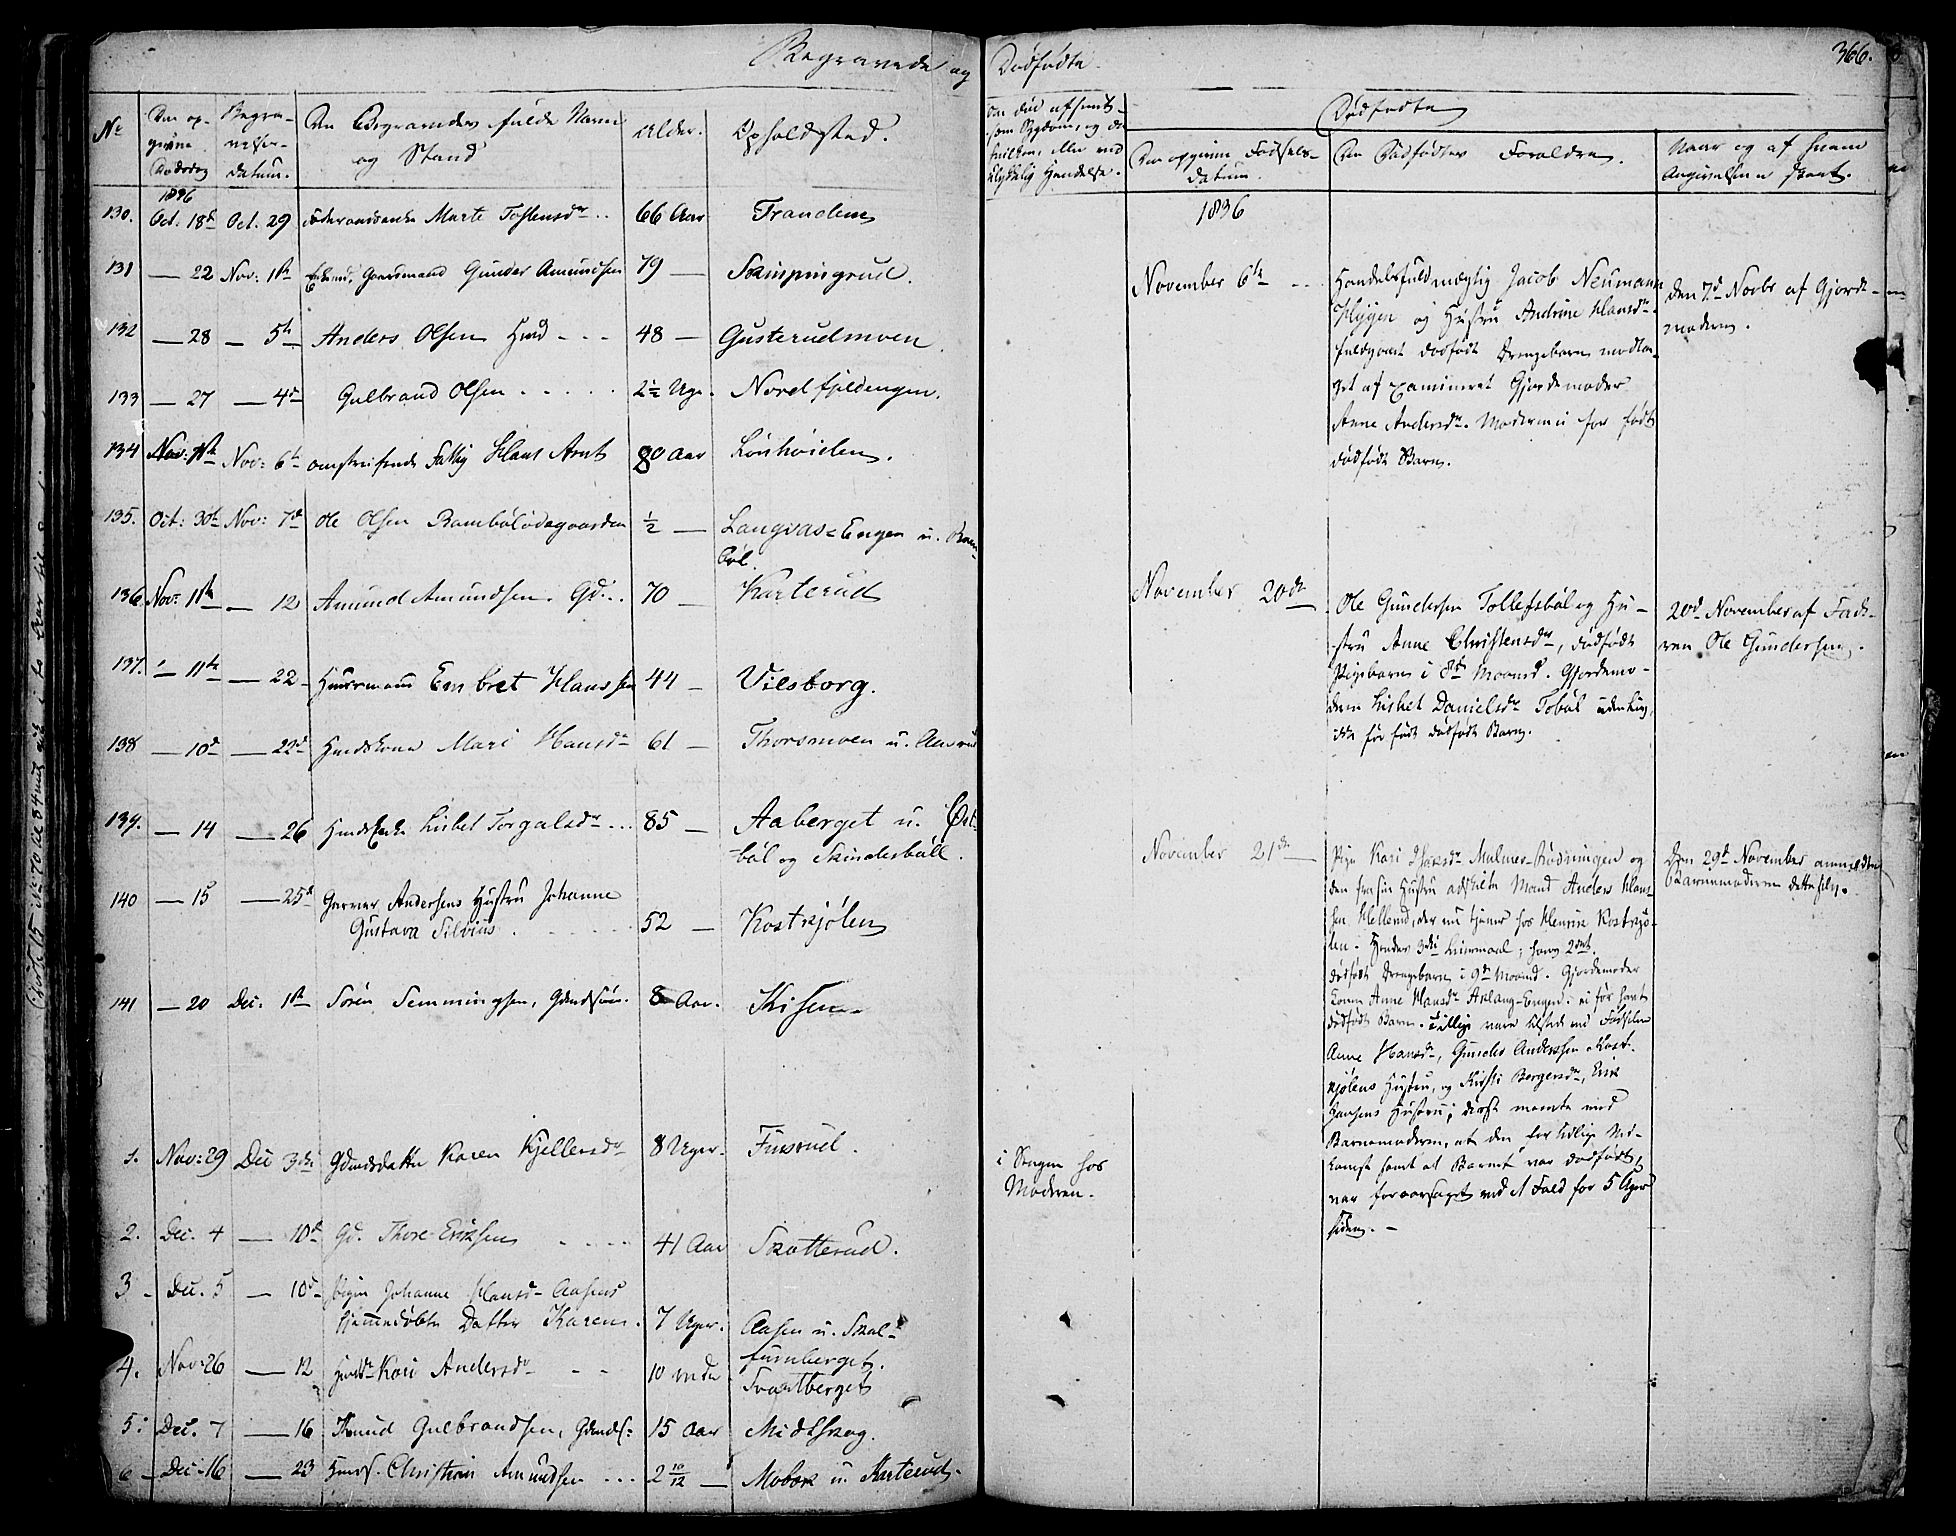 Begravede og Dødfødte. 366.
No
Den op-
givne
Dødsdag
Begra-
velses-
datum.
Den Begravedes fulde Navn
og Stand
Alder.
Opholdssted.
130. 1836 Oct. 18d Oct. 29 Marte Tostensdr 66 Aar Tranden
131 — 22 Nov: 1ste Gaardmand Gunder Amundsen 79 — Skinpingrud.
132 — 28 — 5te Anders Olsen Huusmd - - - 48 — Gusterudmoen.
133 — 27 — 4de Gulbrand Olsen - - - 2½ Uge. Nordfjeldengen.
134 Nov: 1ste Nov: 6te omstreifende Fattig Hans Arnt 80 Aar Lønhøiden.
135. Oct: 30te Nov: 7de Ole Olsen Rambølødegaarden ½ — Langvas-Engen u. Ram-
bøl.
136. Nov: 11te — 12 Amund Amundsen. Gd. 70 — Karterud
137. — 11te — 22 Huusmand Embret Hanssen 44 — Vilsborg.
138 — 10d — 22d Huusmdskone Mari Hansdr 61 — Thorsmoen u. Aaserud
139. — 14 — 26 Lisbet Torgalsdr - - - 85 — Aaberget u. Øst-
bøl og Skindesbøll.
140 — 15 — 25d Garver Andersens Hustru Johanne
Gustava Silvius. - - - 52 — Kostkjølen
141 — 20 Dec. 1ste Søren Semmingsen, Gdmdsøn. 8 Aar. Kisen
1. Nov: 29 Dec 3die Gdmdsdatter Karen Kjellersdr 8 Uger. Finsrud.
i Sengen hos
Moderen.
2. Dec. 4 — 10d Gd. Thore Eriksen - - - 41 Aar Skotterud.
3 - Dec. 5 — 10d Pigen Johanne Hansdr Aasens
hjemmedøbte Datter Karen. 7 Uger. Aasen u. Skal-
furuberget.
4. Nov: 26 — 12 Kari Andersdr - - 10 mdr Svartberget
5. Dec. 7 — 16 Knud Gulbrandsen, Gdmds. 15 Aar Midtskog.
6 - Dec: 16 — 23 Christian Amundsen - - - 2 10/12 — Mobæk u. Karterud.
Om død af smit-
som Sygdom, og da
hvilken, eller ved
ulykkelig Hændelse.
Dødfødte
Den opgivne Fødsels-
datum.
Den Dødfødtes Forældre.
Naar og af hvem
Angivelsen er skeet.
1836
November 6te - - -
Handelsfuldmægtig Jacob Neumann
Hygen og Hustru Andrine Hansdr.
fuldbaaret dødfødt Drengebarn modta-
get af examineret Gjordemoder
Anne Andersdr. Moderen ei før født
dødfødt Barn.
den 7d Novbr af Gjorde-
moderen.
November 20de
Ole Gundersen Tollefsbøl og Hu-
stru Anne Christensdr, dødfødt
Pigebarn i 8de Maaned. Gjordemo-
deren Lisbet Danielsdr Tobøl
ikke før født dødfødt Barn.
20d November af Fade-
ren Ole Gundersen.
November 21de
Pige Kari Malmer-Rødningen og
den fra sin Hustru adskilte Mand Anders Hans-
sen Helland, der nu tjener hos Henrik Kostkjø-
len. Hendes 3die Leiermaal; hans 2det.
dødfødt Drengebarn i 9de Maaned. Gjordemoder
Konen Anne Hansdr Aslang-Engen. ei før havt
dødfødt Barn. Tillige vare tilstede ved Fødselen
Anne Hansdr, Gunder Anderssen Kost-
kjølens Hustru, og Kirsti Borgersdr, Erik
Jensens Hustru; disse meente med
Barnemoderen, at den for tidlige Ned-
komst samt at Barnet var dødfødt,
var foraarsaget ved et Fald for 5 Uger
siden. -
den 29d November anmeldte
Barnemoderen dette selv.